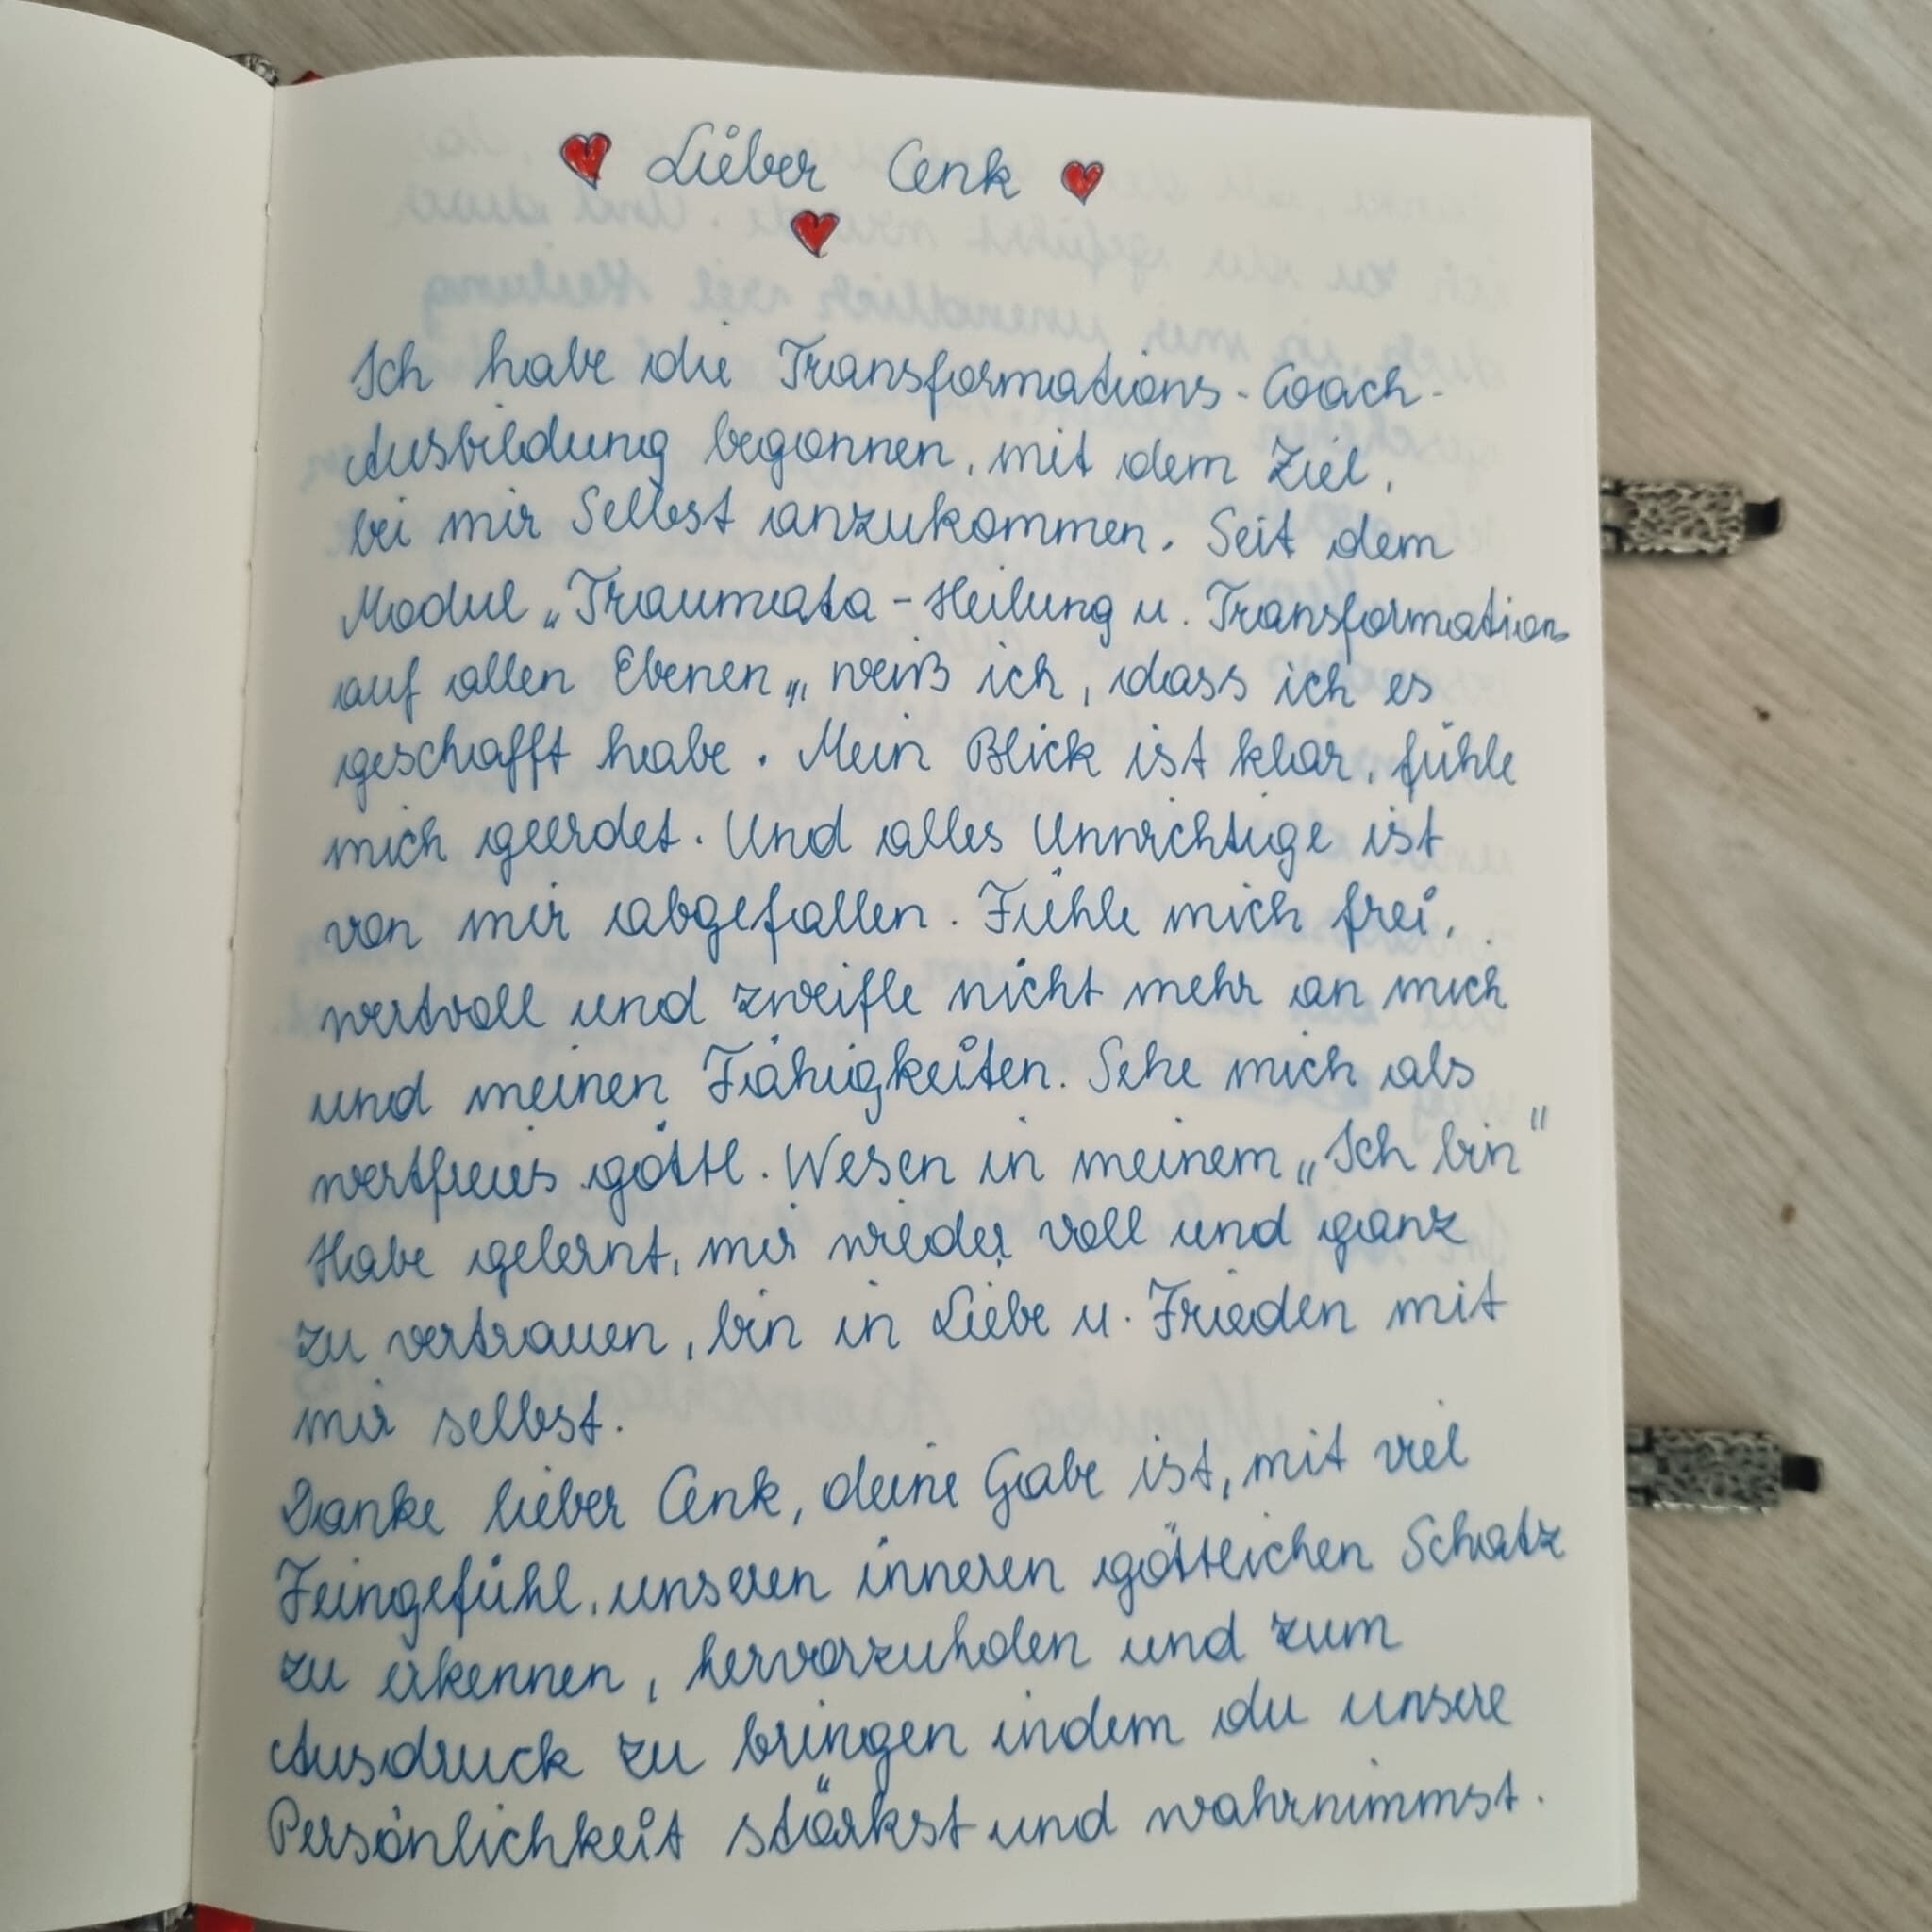 Lieber Cenk
Ich habe die Transformations-Coach-
Ausbildung begonnen, mit dem Ziel,
bei mir Selbst anzukommen. Seit dem
Modul „Traumata - Heilung u. Transformation
auf allen Ebenen„, weiß ich, dass ich es
geschafft habe. Mein Blick ist klar, fühle
mich geerdet. Und alles Unwichtige ist
von mir abgefallen. Fühle mich frei,
wertvoll und zweifle nicht mehr an mich
und meinen Fähigkeiten. Sehe mich als
wertfreies göttl. Wesen in meinem „Ich bin"
Habe gelernt, mir wieder voll und ganz
zu vertrauen, bin in Liebe u. Frieden mit
mir selbst.
Danke lieber Cenk, deine Gabe ist, mit viel
Feingefühl, unseren inneren göttlichen Schatz
zu erkennen, hervorzuholen und zum
Ausdruck zu bringen indem du unsere
Persönlichkeit stärkst und wahrnimmst.